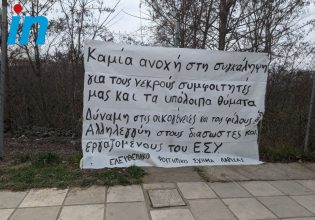 in
Καμία ανοχή στη συγκάλυψη
για τους νεκρούς συμφοιτητές
μας και τα υπόλοιπα θύματα
Δύναμη στις οικογένειές και τις φίλους
Αλληλεγγύη στους διασώστες και
εργαζόμενους του ΕΣΥ
ΕΛΕΥΘΕΡΙΑΚΟ ΦΟΙΤΗΤΙΚΟ ΣΧΗΜΑ ΛΑΡΙΣΑΣ